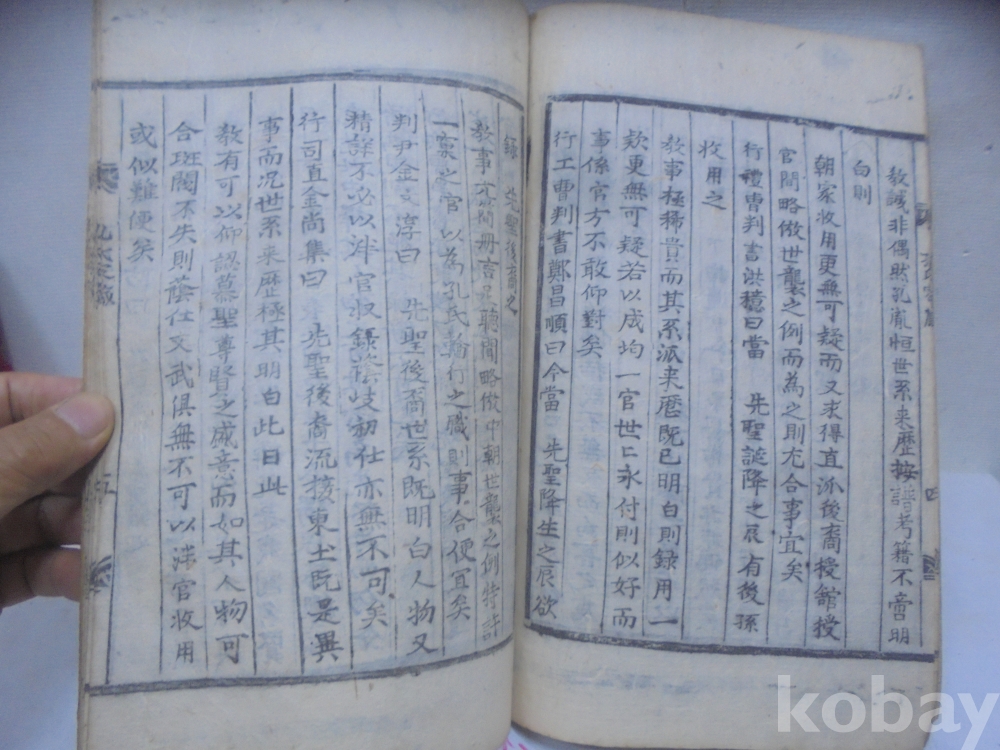 教誠非偶然孔胤恒世系来歷按譜考籍不啻明
白則
朝家收用更無可疑而又求得直派後裔授館授
官間略倣世襲之例而為之則尤合事宜矣
行禮曹判書洪檍曰當 先聖誕降之辰有後孫
收用之
教事極稀貴而其系派来歷既已明白則錄用一
欵更無可疑若以成均一官世〻永付則似好而
事係官方不敢仰對矣
行工曹判書鄭昌順曰今當 先聖降生之辰欲
錄 先聖後裔之
教事 簡册言 聽聞略倣中朝世襲之例特許
一窠之官以為孔氏 行之職則事合便宜矣
判尹金 淳曰 先聖後裔世系既明白人物又
精詳不必以泮官收錄 岐初仕亦無不可矣
行司直金尚集曰 先聖後裔流接東土既是異
事而况世系来歷極其明白此日此
教有可以仰認慕聖尊賢之盛意而如其人物可
合班閥不失則蔭仕文武俱無不可以泮官收用
或似難便矣
四
五
kobay